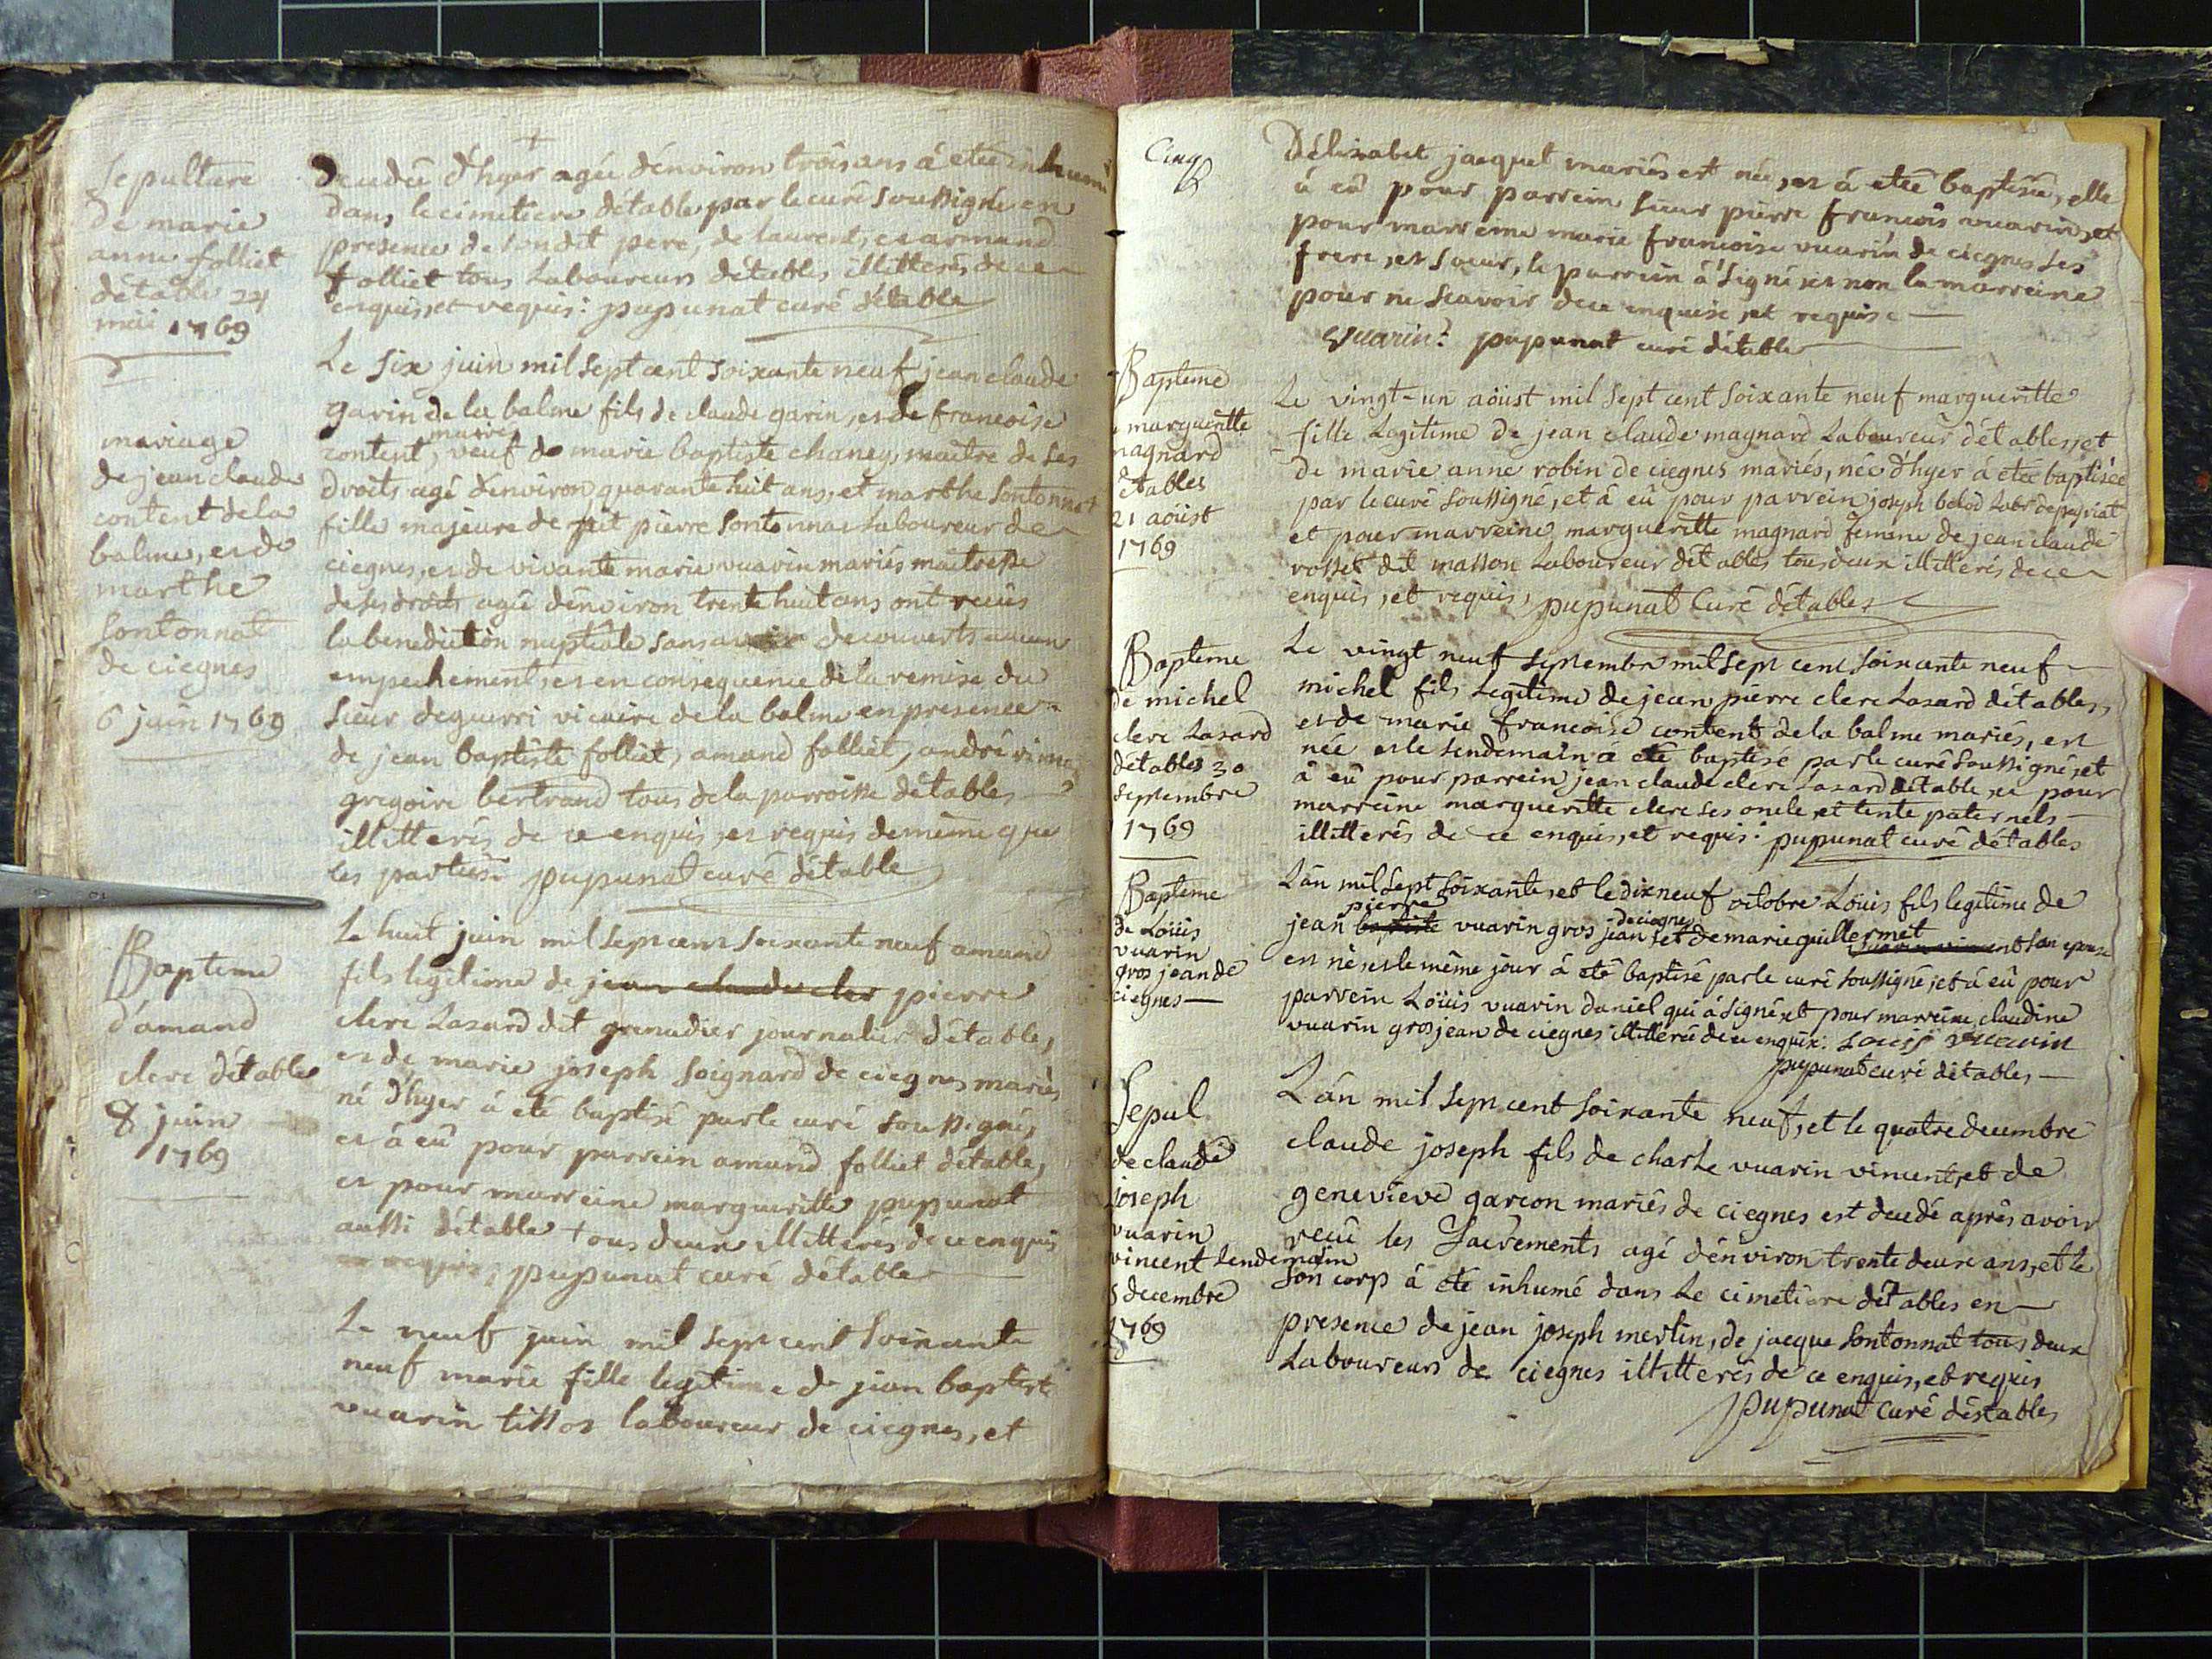 Sepulture
de marie
anne folliet
détable 24
mai 1769
decedée d'hyer agée d'environ trois ans à etée inhumé
dans le cimetiere détable par le curé soussigné en
presence de son dit pere, de laurent, et armand
folliet tous Laboureurs détables illitterés de ce
enquis, et requis: pupunat curé détable
mariage
de jean claude
content de la
balme, et de
marthe
Sontonnat
de ciegnes
6 juin 1769
Le six juin mil sept cent soixante neuf jean claude
garin de la balme fils de claude garin, et de francoise
content, veuf de marie baptiste chaney, maitre de ses
droits agé d'environ quarante huit ans, et marthe Sontonnat
fille majeure de pierre Sontonnat Laboureur de
ciegnes, et de vivante marie vuarin mariés maitresse
de ses droits agée d'environ trente huit ans ont recûs
la benediction nuptiale sans avoir decouverts aucun
empechement, et en consequence de la remise du
Sieur deguerri vicaire de la balme en presence
de jean baptiste folliet, amand folliet, andré
gregoire bertrand tous de la parroisse détables
illitterés de ce enquis, et requis de mème que
les parties pupunat curé détable
Bapteme
d'amand
clerc détable
8 juin
1769
Le huit juin mil sept cent soixante neuf amand
fils legitime de jean claude clerc pierre
clerc Lazard dit grenadier journalier détable,
et de marie joseph Soignard de ciegnes mariés
né d'hyer à eté baptisé par le curé soussigné,
et à eû pour parrein amand folliet détable,
et pour marreine margueritte pupunat
aussi détable tous deux illitterés de ce enquis
et requis, pupunat curé détable
Le neuf juin mil sept cent soixante
neuf marie fille legitime de jean baptiste
vuarin tissot laboureur de ciegnes, et
Cinq
D'élizabet jacquet mariés est née, et à etée baptisée, elle
à eû pour parrein sieur pierre francois vuarin, et
pour marreine marie francoise vuarin de ciegnes ses
frere, et soeur, le parrein à signé et non la marreine
pour ne scavoir de ce enquise, et requise
Vuarin: pupunat curé détable
Bapteme
margueritte
magnard
détables
21 aoüst
1769
Le vingt-un aoüst mil sept cent soixante neuf margueritte
fille Legitime de jean claude magnard Laboureur détables, et
de marie anne robin de ciegnes mariés, née d'hyer à etée baptisée
par le curé soussigné, et à eû pour parrein joseph belod Labr de peyriat
et pour marreine margueritte magnard femme de jean claude
rosset dit masson Laboureur détables tous deux illitterés de ce
enquis, et requis, pupunat Curé détables
Bapteme
de michel
clerc Lazard
détables 30
Septembre
1769
Le vingt neuf septembre mil sept cent soixante neuf
michel fils Legitime de jean pierre clerc Lazard détables,
et de marie francoise content de la balme mariés, est
née et le lendemain à eté baptisé par le curé soussigné, et
à eû pour parrein jean claude clerc Lazard détable, et pour
marreine margueritte clerc ses oncle, et tente paternels
illitterés de ce enquis, et requis: pupunat curé détables
Bapteme
de Loüis
vuarin
gros jean de
ciegnes
L'àn mil sept soixante, et le dix neuf octobre Loüis fils legitime de
pierre
de ciegnes
jean baptiste vuarin gros jean, et de marie guillermet son epouse
est né, et le mème jour à eté baptisé par le curé soussigné, et à eû pour
parrein Loüis vuarin daniel qui à signé, et pour marreine, claudine
vuarin gros jean de ciegnes illitterée de ce enquise: Louis vuarin
pupunat curé détables
Sepul
de claude
joseph
vuarin
vincent
5 decembre
1769
L'àn mil sept cent soixante neuf, et le quatre decembre
claude joseph fils de charle vuarin vincent, et de
genevieve garcon mariés de ciegnes est decedé après avoir
recû les Sacrements agé d'environ trente deux ans, et le
lendemain
son corp à eté inhumé dans le cimetiere détables en
presence de jean joseph merlin, de jacque Sontonnat tous deux
Laboureurs de ciegnes illitterés de ce enquis, et requis
pupunat curé déstables